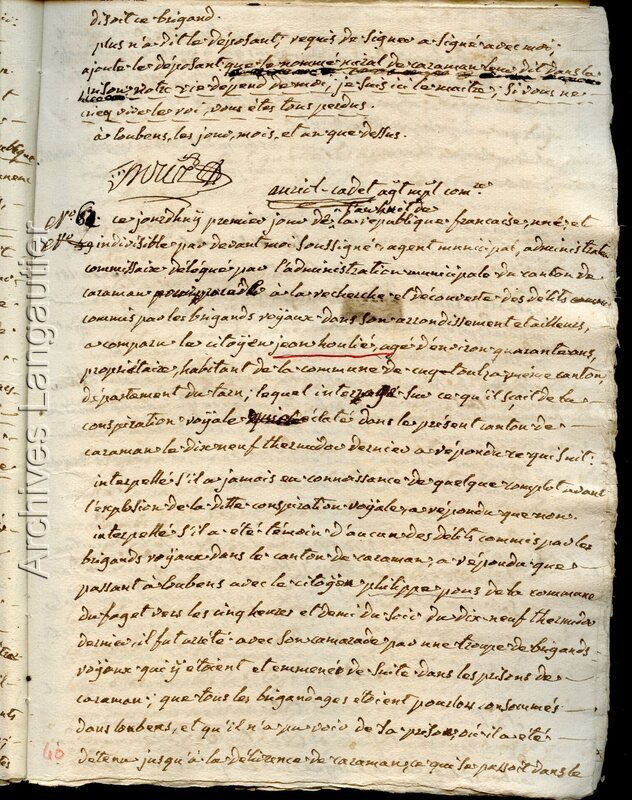 disoit ce brigand.
plus n'a dit le déposant; requis de signer a signé avec moi,
ajoute le déposant que le nommé nazal de caraman leur dit dans la
prison notre vie depend de moi, je suis ici le maitre; si vous ne
criez vive le roi, vous êtes tous perdus.
à loubens, les jour, mois, et an que dessus.
auriol-cadet agt mpl comre
N.° 62
ce jourdhuy premier jour de l'an huit de la republique francaise, une, et
indivisible par devant moi soussigné agent municipal, administrateur
commissaire délégué par l'administration municipale du canton de
caraman à la recherche et découverte des délits
commis par les brigands royaux dans son arrondissement et ailleurs,
a comparu le citoyen jean houlié, agé d'environ quarante ans,
propriétaire, habitant de la commune de cuq toulza meme canton
département du tarn; lequel interpellé sur ce qu'il scait de la
conspiration royale éclaté dans le présent canton de
caraman le dix neuf thermidor dernier a répondu ce qui suit:
interpellé s'il a jamais eu connaissance de quelque complot avant
l'explosion de la ditte conspiration royale, a répondu que non.
interpellé s'il a été témoin d'aucun des délits commis par les
brigands royaux dans le canton de caraman, a répondu que
passant à loubens avec le citoyen philippe pons de la commune
du faget vers les cinq heures et demi du soir du dix neuf thermidor
dernier il fut arreté avec son camarade par une troupe de brigands
royaux qui y étoient et emmenés de suite dans les prisons de
caraman; que tous les brigandages étoient pour lors consommés
dans loubens, et qu'il n'a pu voir de la prison, où il a été
détenu jusqu'à la délivrance de caraman, ce qui se passoit dans le
40
Archives Langautier